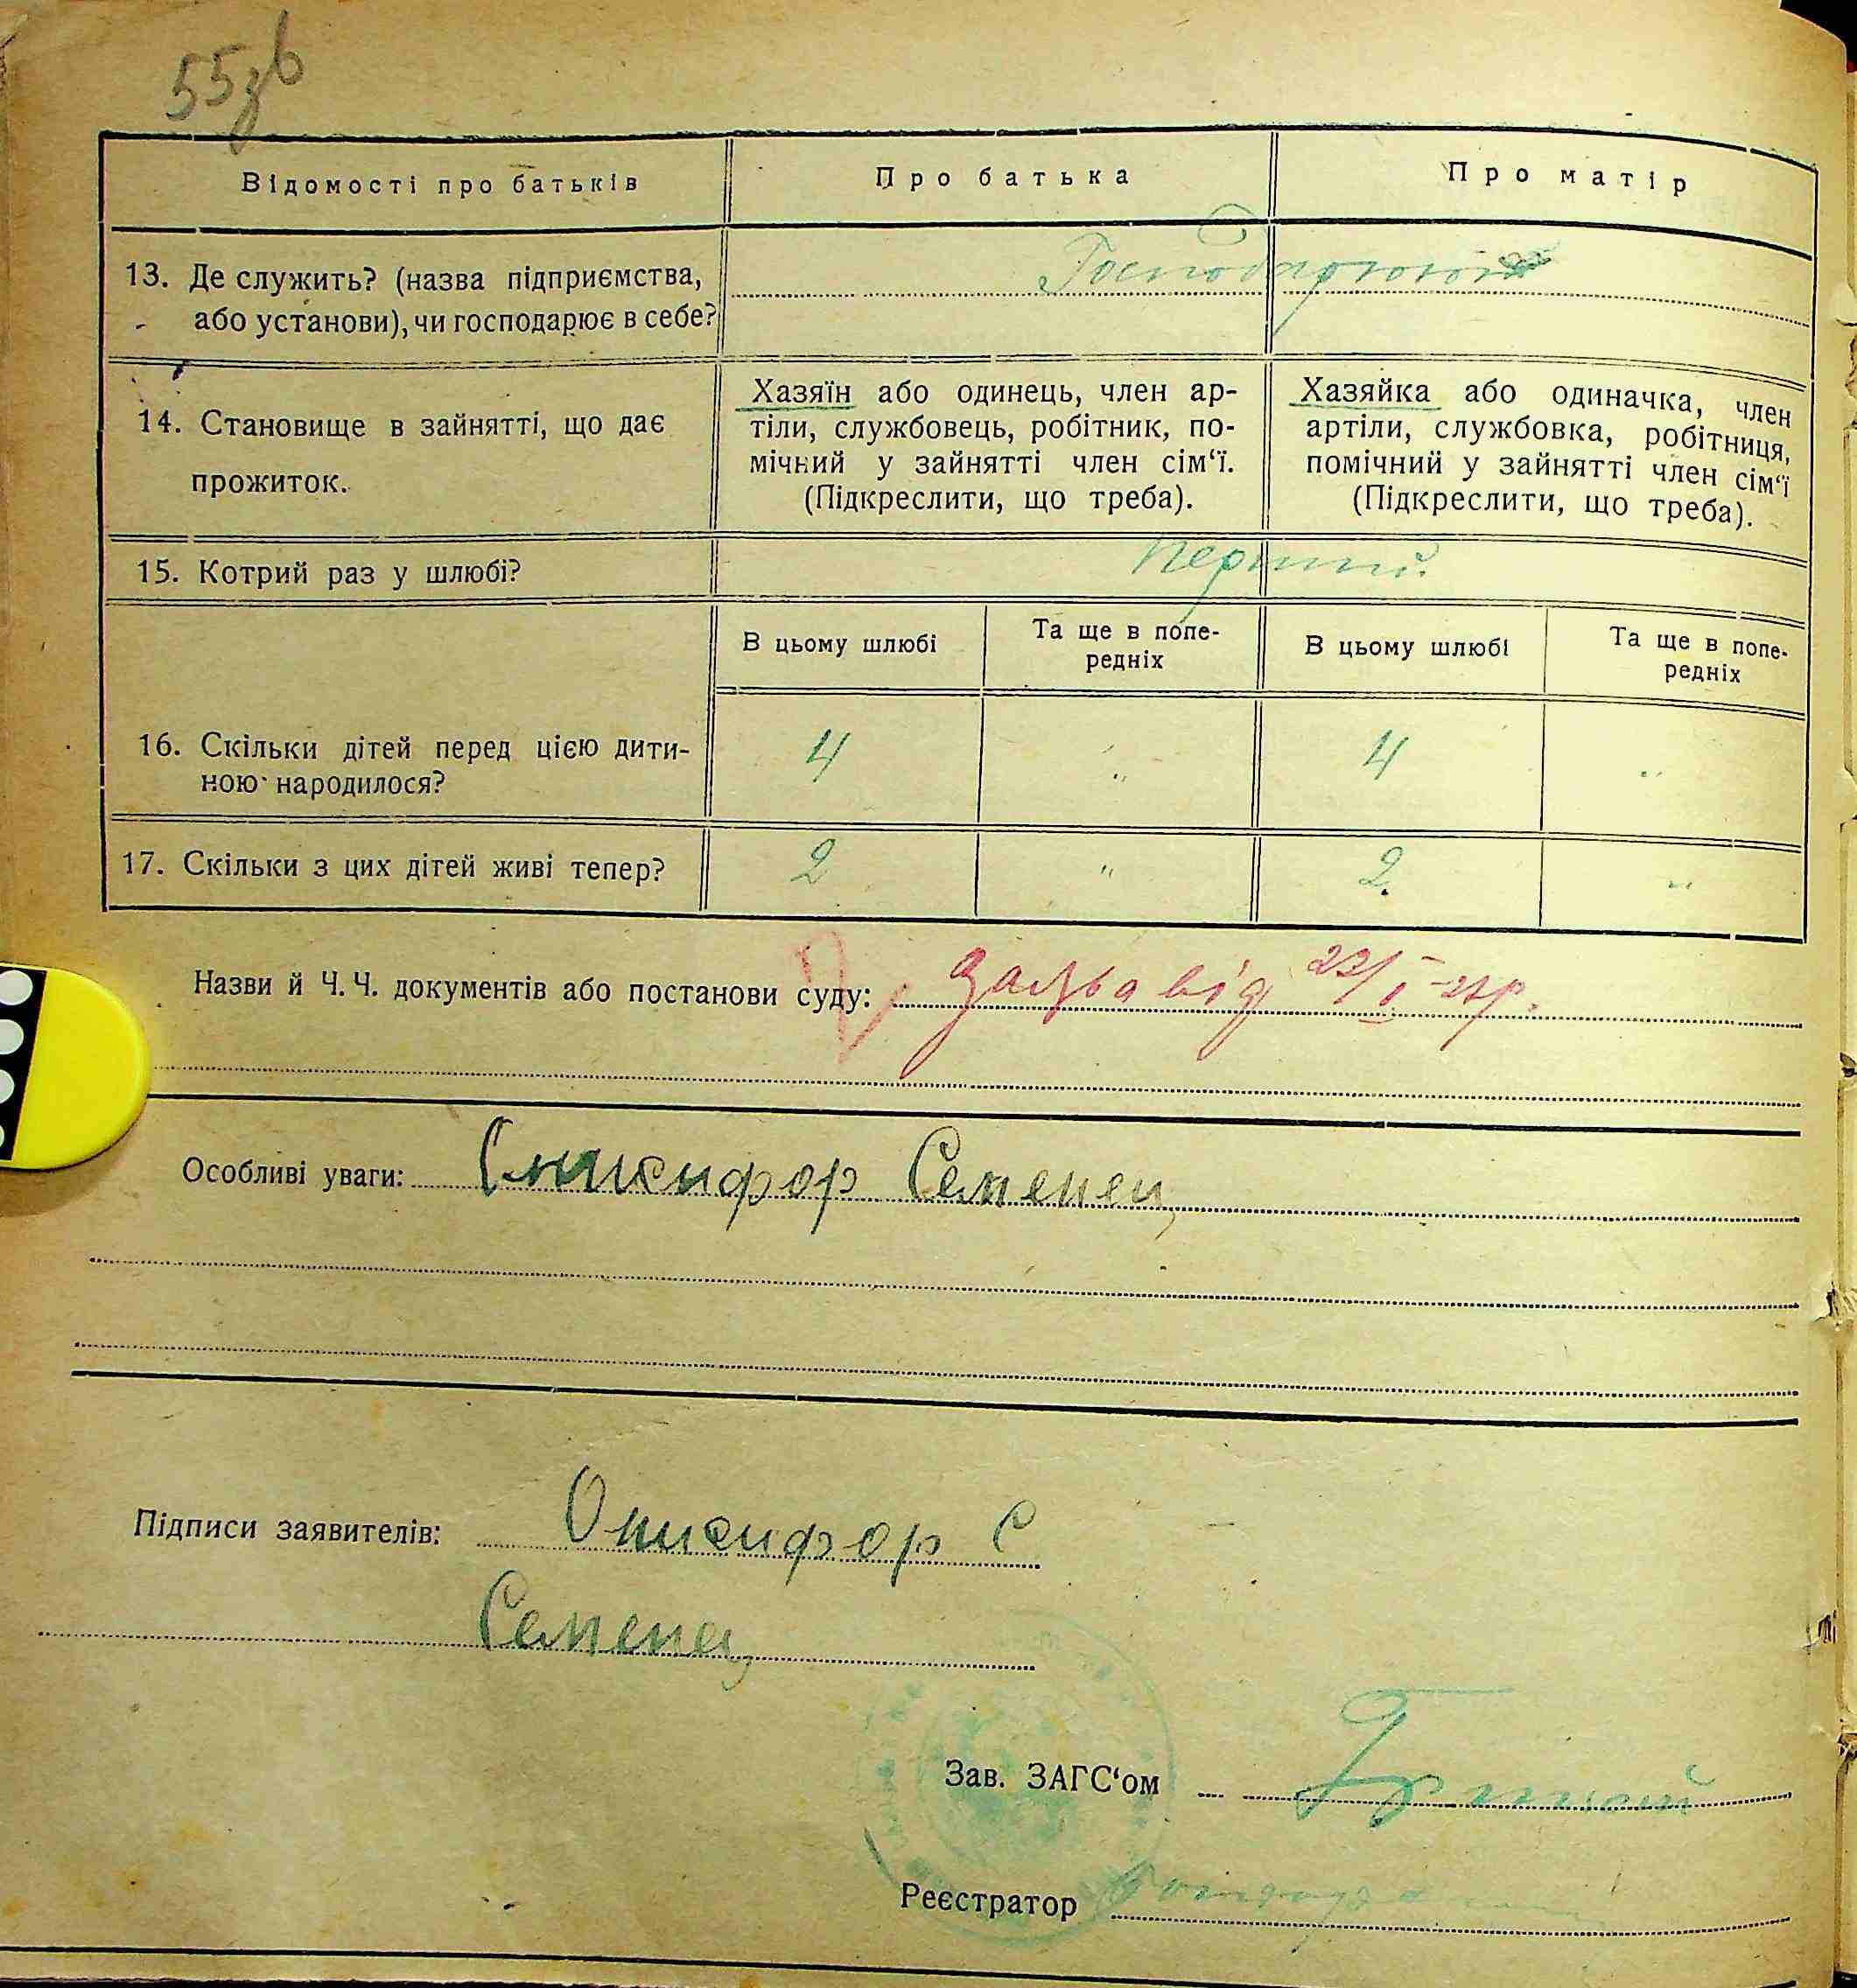 55зв
Відомості про батьків
Про батька
Про матір
13. Де служить? (назва підприємства,
або установи), чи господарює в себе?
Господарюють
14. Становище в зайнятті, що дає
прожиток.
Хазяїн або одинець, член ар-
тіли, службовець, робітник, по-
мічний у зайнятті член сім‘ї.
(Підкреслити, що треба).
Хазяйка або одиначка, член
артіли, службовка, робітниця,
помічний у зайнятті член сім‘ї
(Підкреслити, що треба).
15. Котрий раз у шлюбі?
перший.
В цьому шлюбі
Та ще в попе-
редніх
В цьому шлюбі
Та ще в попе-
редніх
16. Скільки дітей перед цією дити-
ною народилося?
4 " 4 "
17. Скільки з цих дітей живі тепер?
2 " 2 "
Назви й Ч. Ч. документів або постанови суду: заява від
Особливі уваги: Семенец
Підписи заявителів: Онисифор С
Семенец
Зав. ЗАГС‘ом
Реєстратор